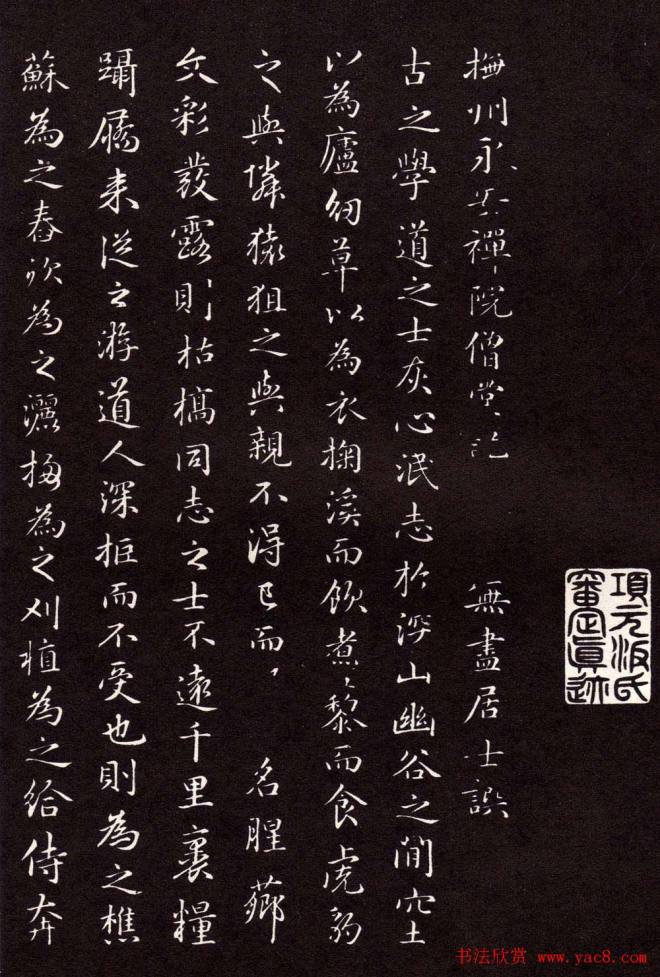 撫州永安禪院僧堂記　無盡居士譔
古之學道之士灰心泯志於深山幽谷之間穴土
以為廬紉草以為衣掬溪而飲煮黎而食虎豹
之與鄰猿狙之與親不得已而　名腥薌
文彩發露則枯槁同志之士不遠千里裹糧
躡屩来從之游道人深拒而不受也則為之樵
蘇為之舂炊為之灑掃為之刈植為之給侍奔
項元汴氏
審定真迹
书法欣赏 www.yac8.com